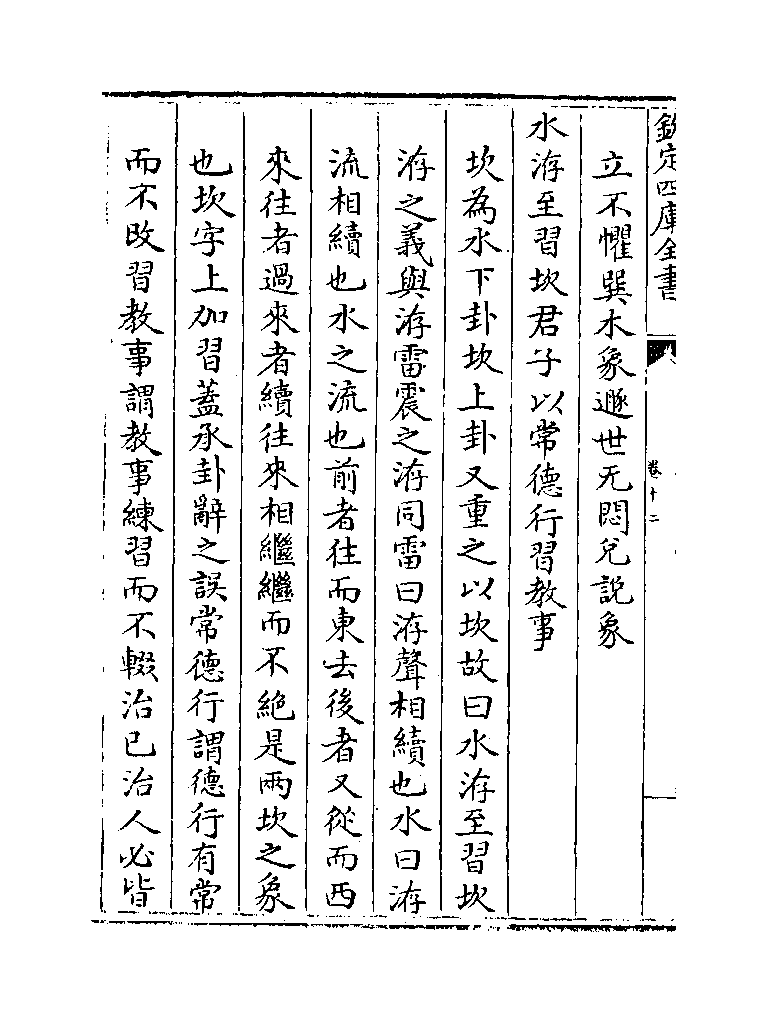 欽定四庫全書
卷十二
立不懼巽木象遯世无悶兌說象
水洊至習坎君子以常德行習教事
坎為水下卦坎上卦又重之以坎故曰水洊至習坎
洊之義與洊雷震之洊同雷曰洊聲相續也水曰洊
流相續也水之流也前者往而東去後者又從而西
來往者過來者續往來相繼繼而不絕是兩坎之象
也坎字上加習蓋承卦辭之誤常德行謂德行有常
而不改習教事謂教事練習而不輟治已治人必皆